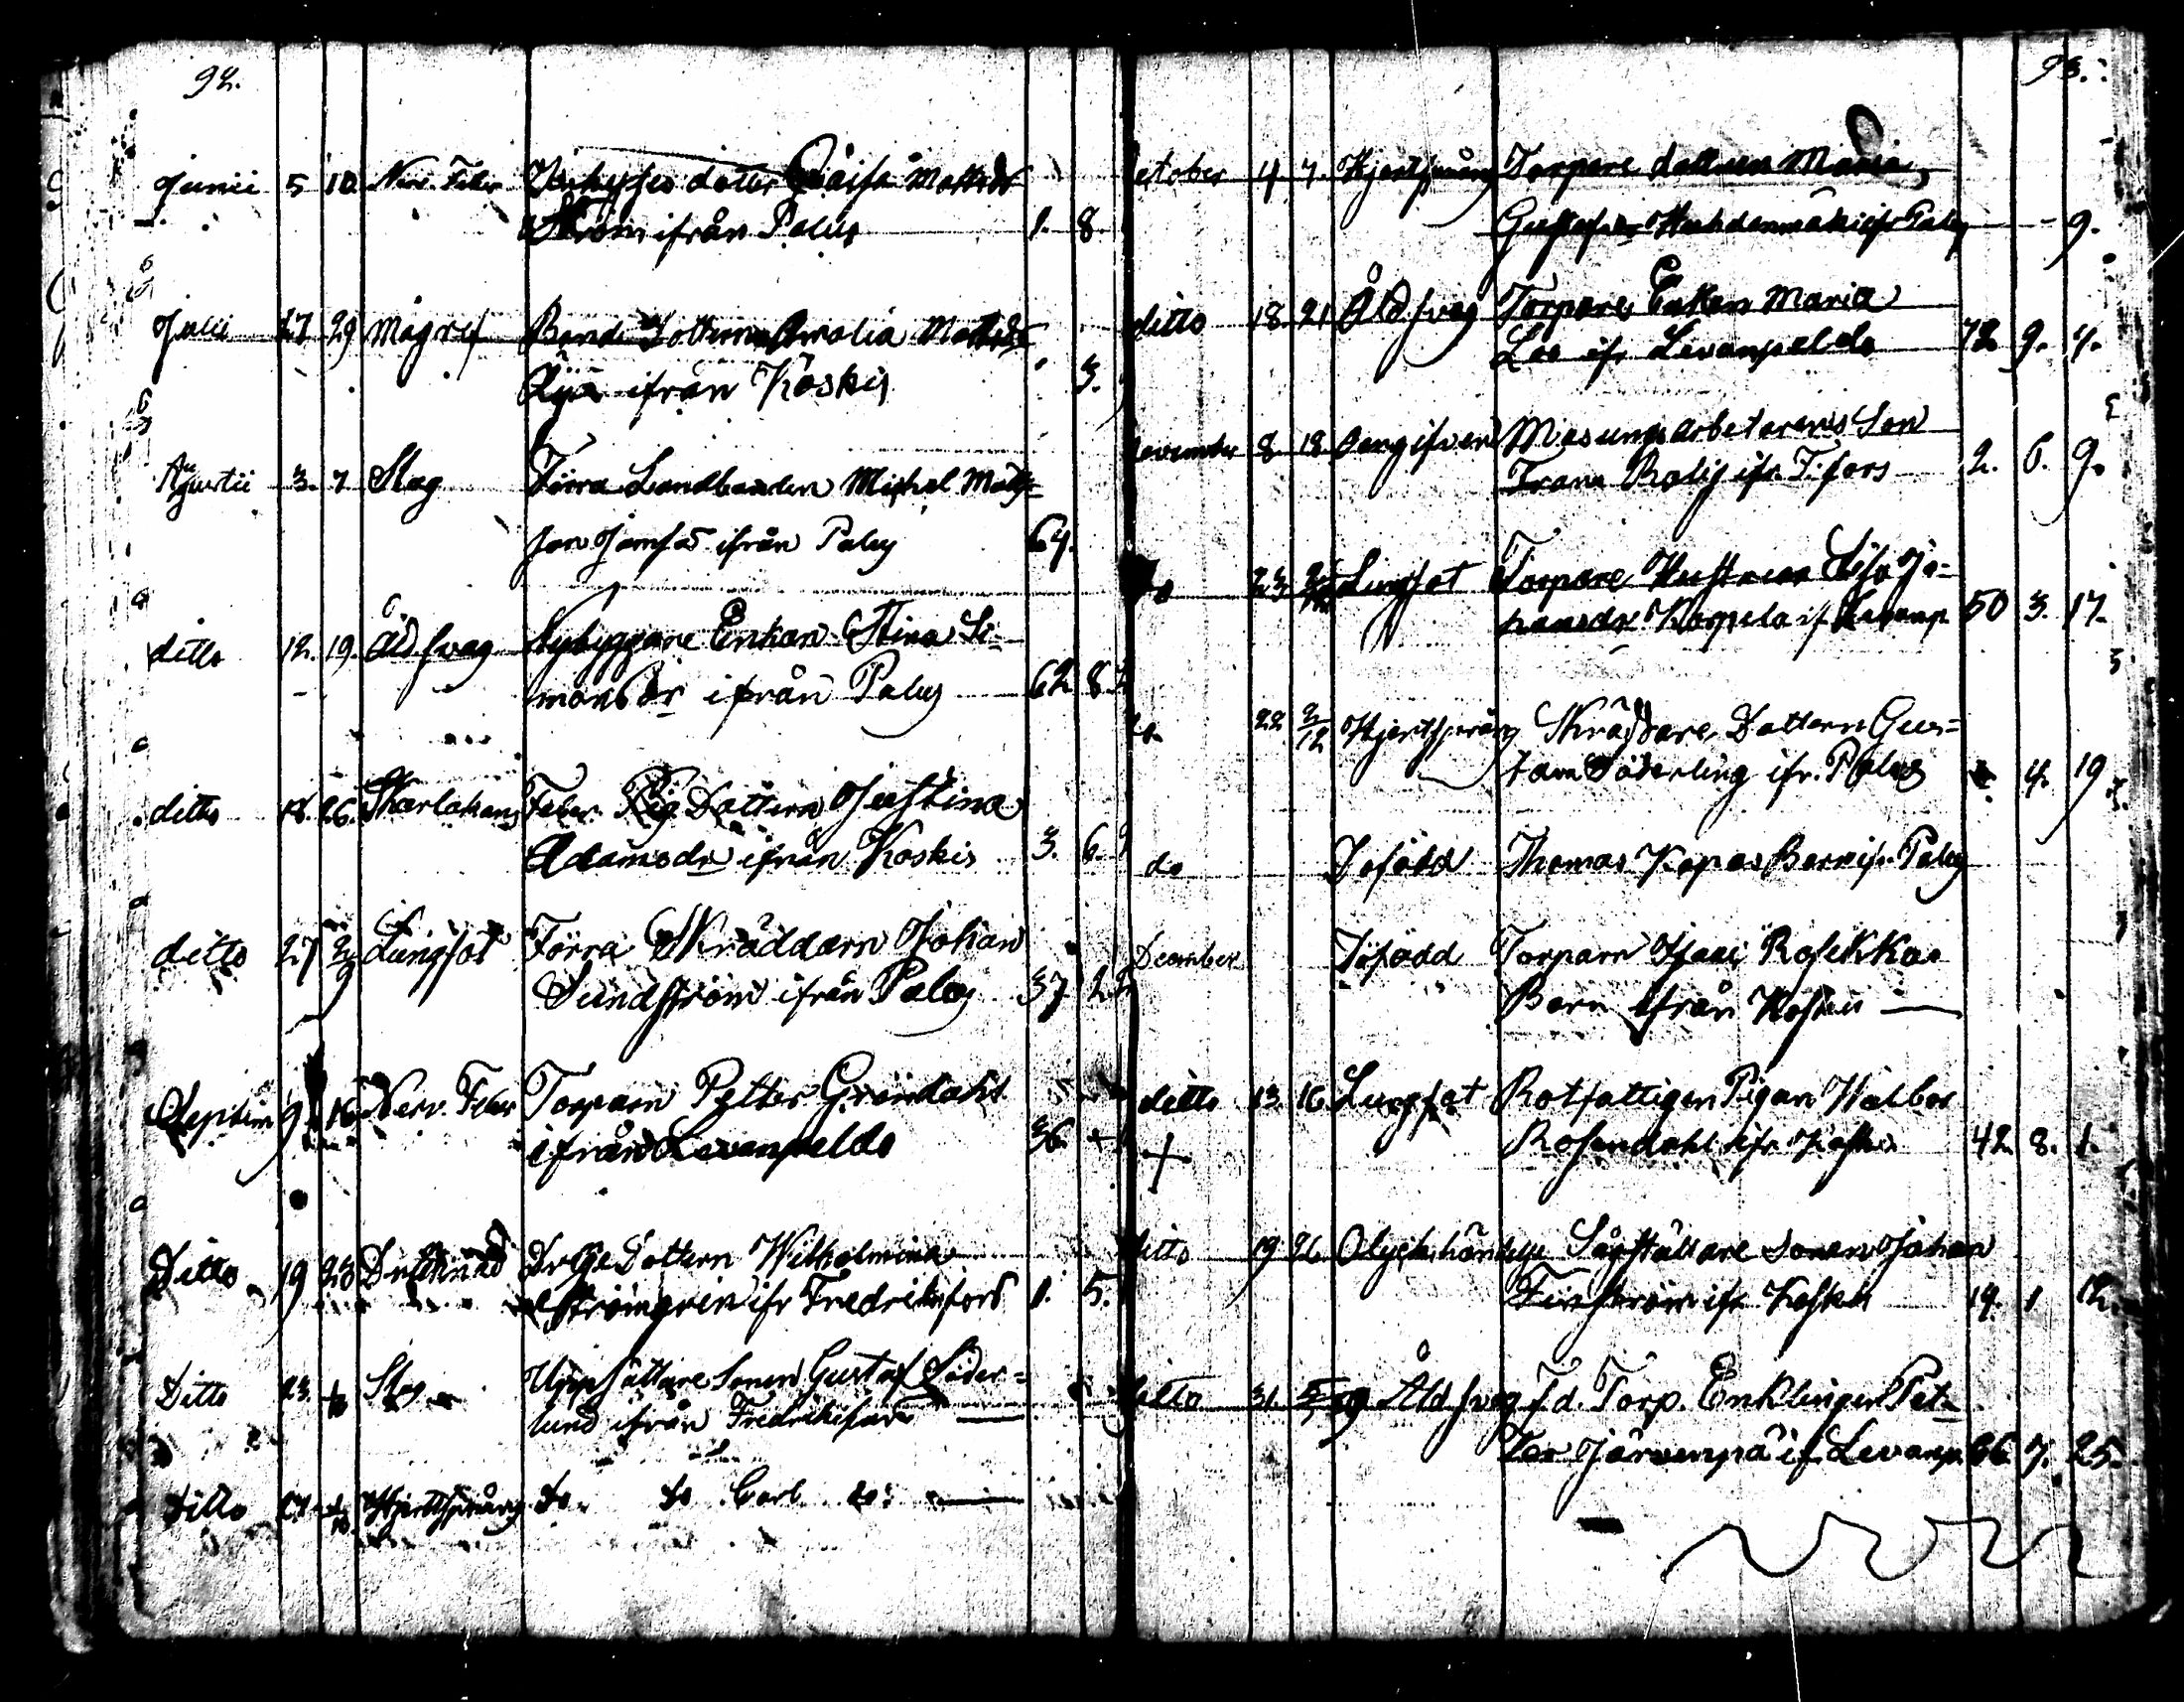 92.
Junii 5 10 Nerv. Feber Inhyses dotter Caisa Mattsdr
Ström ifrån Palus 1. 8
Julii 27 29 Magref Bonde Dottern Amalia Mattsdr
Äijä ifrån Koskis 3.
Augustii 3. 7 Slag Förra Landbonden Michel Matts
son Jämsä ifrån Palus 64.
ditto 12. 19. Ålds svag Nybyggare Enkan Stina Si-
monsdr ifrån Palus 62 8
ditto 18. 26. Skarlakans Feber Pig Dottern Justina
Adamsdr ifrån Koskis 3. 6.
ditto 27 2/9 Lungsot Förra Skräddarn Johan
Sundström ifrån Palus 37 2
Septem 9 16 Nerv. Feber Torparn Petter Gröndahl
ifrån Levanpeldo 36
Ditto 19 23 Drunknad Dottern Wilhelmina
Strömgren ifr Fredriksfors 1. 5.
Ditto 23. Slag Uppsättare Sonen Gustaf Söder=
lund ifrån Fredriksfors —
ditto Hjertsprång do do Carl do: —
93.
October 4 7. Hjertsprång Torpare dottern Maria
Gustafsdr ifr Palus 9.
ditto 18. 21 Ålds svag Torpare Enkan Maria
Loo ifr Levanpeldo 72 9. 4.
November 8. 18. Oangifven Masungsarbetarens Son
Frans Rolig ifr. F:fors 2. 6. 9.
do 23 Lungsot Torpare Hustrun Lisa Jo=
hansdr Korpela if Levanp 50 3. 17.
do 22 2/12 Hjertsprång Skräddare Dottern Gus=
tava Söderling ifr. Palus 4. 19
do Dofödd Thomas Kapas Barn ifr. Palus
December Döfödd Torparn Isaac
Barn ifrån Koskis —
ditto 13. 16 Lungsot Rotfattigen Pigan Walbor
+ Rosendahl ifr. Koskis 42. 8. 1.
ditto 19 26 Olyckshändelse Sågställare Sonen Johan
ifr Koskis 19. 1 12.
ditto 31. Ålds svag f.d. Torp. Enklingen Pet-
ter Järvenpä if. Levanp. 66 7. 25.